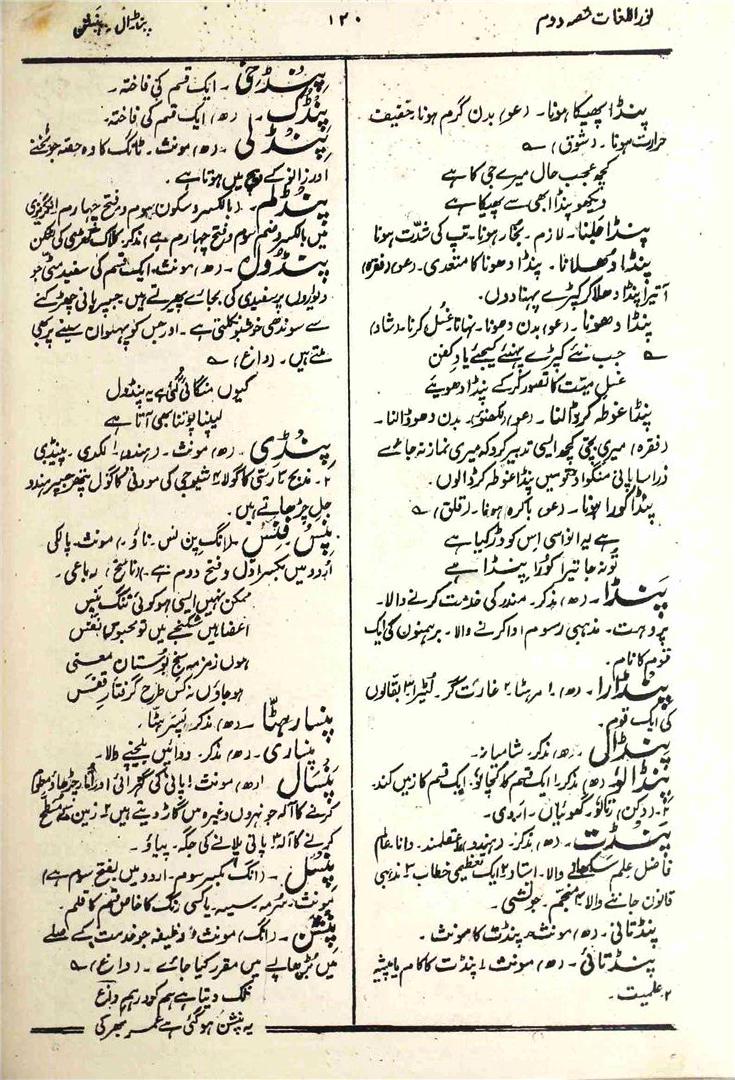 نوراللغات حصہ دوم
۱۲۰
پنڈال۔ پنشن
پنڈا پھیکا ہونا۔ (عو) بدن گرم ہونا۔ خفیف
حرارت ہونا۔ (شوق) ؎
کچھ عجب حال میرے جی کا ہے
دیکھو پنڈا ابھی سے پھیکا ہے
پنڈا جلنا۔ لازم۔ بخار ہونا۔ تپ کی شدّت ہونا
پنڈا دُھلانا۔ پنڈا دھونا کا متعدی۔ (عو) (فقرہ)
آ تیرا پنڈا دھلا کر کپڑے پہنا دوں۔
پنڈا دھونا۔ (عو) بدن دھونا۔ نہانا غسل کرنا۔ (شاد)
؎ جب نئے کپڑے پہنئے کیجئے یادِ کفن
غسلِ میّت کا تصور کر کے پنڈا دھویئے
پنڈا غوطہ کر ڈالنا۔ (عو) (لکھنؤ)۔ بدن دھو ڈالنا۔
(فقرہ) میری بچّی کچھ ایسی تدبیر کرو کہ میری نماز نہ جائے
ذرا سا پانی منگوا دو تو میں پنڈا غوطہ کر ڈالوں۔
پنڈا کورا ہونا۔ (عو) باکرہ ہونا۔ (قلق) ؎
ہے یہ انواسی اس کو ڈر کیا ہے
تُو نہ جا تیرا کورا پنڈا ہے
پَنڈا۔ (ھ) مذکر۔ مندر کی خدمت کرنے والا۔
پروہت۔ مذہبی رسوم ادا کرنے والا۔ برہمنوں کی ایک
قوم کا نام۔
پِنڈارا۔ (ھ) ۱ مرہٹا ۲ غارت گر۔ لُٹیرا ۳ بقالوں
کی ایک قوم۔
پنڈال۔ (ھ) مذکر۔ شامیانہ۔
پنڈالو۔ (ھ) مذکر۔ ۱ ایک قسم کا کچالو۔ ایک قسم کا زمیں کند۔
۲۔ (دکن) رتالو۔ گھوئیاں۔ اروی۔
پنڈت۔ (ھ) مذکر۔ (ہندو) ۱ عقلمند۔ دانا عالم
فاضل علم سکھانے والا۔ استاد ۲ ایک تعظیمی خطاب ۳ مذہبی
قانون جاننے والا ۴ منجّم۔ جوتشی۔
پنڈتانی۔ (ھ) مونث۔ پنڈت کا مونث۔
پنڈتائی۔ (ھ) مونث۔ ۱ پنڈت کا کام یا پیشہ
۲۔ علمیت۔
پنڈخی۔ ایک قسم کی فاختہ۔
پنڈک۔ (ھ) ایک قسم کی فاختہ۔
پِنڈلی۔ (ھ) مونث۔ ٹانگ کا وہ حصہ جو ٹخنے
اور زانو کے بیچ میں ہوتا ہے۔
پنڈلم۔ (بالکسر و سکون سوم و فتح چہارم انگریزی
میں بالکسر و ضم سوم و فتح چہارم ہے) مذکر۔ کلاک گھڑی کی لٹکن
پنڈول۔ (ھ) مونث۔ ایک قسم کی سفید مٹی جو
دیواروں پر سفیدی کی بجائے پھیرتے ہیں جسپر پانی چھڑکنے
سے سوندھی خوشبو نکلتی ہے۔ اور جس کو پہلوان سینے پر بھی
ملتے ہیں۔ (داغ) ؎
کیوں منگائی گئی ہے یہ پنڈول
لیپنا پوتنا بھی آتا ہے
پِنڈی۔ (ھ) مونث۔ (ہندو) ۱ لگدی۔ پیندی
۲۔ مذبح ۳ رسّی کا گولا ۴ شیوجی کی مورتی کا گول پتھر جسپر ہندو
جل چڑھاتے ہیں۔
پنِس فِنِس۔ (انگ پن نس۔ ناؤ) مونث۔ پالکی
اُردو میں بکسر اوّل و فتح دوم ہے۔ (ناسخ) رباعی۔
ممکن نہیں ایسی ہو کوئی تنگ پنس
اعضا ہیں شکنجے میں تو محبوس نفس
ہوں زمزمہ سنج بوستان معنی
ہو جاؤں نہ کس طرح گرفتار قفس
پنسارہٹا۔ (ھ) مذکر۔ پنسرہٹا۔
پنساری۔ (ھ) مذکر۔ دوائیں بیچنے والا۔
پنسال۔ (ھ) مونث ۱ پانی کی گہرائی اور اُتار چڑھاؤ معلوم
کرنے کا آلہ جو نہروں وغیرہ میں گاڑ دیتے ہیں ۲۔ زمین کے مسطح
کرنے کا آلہ ۳ پانی پلانے کی جگہ۔ پیاؤ۔
پنسل۔ (انگ بکسر سوم۔ اردو میں بفتح سوم ہے)
مونث۔ سُرمہ۔ سیسہ۔ یا کسی رنگ کا خاص قسم کا قلم۔
پنشن۔ (انگ) مونث۔ وظیفہ جو خدمت کے صلے
میں بڑھاپے میں مقرر کیا جائے۔ (داغ) ؎
فلک دیتا ہے ہم کو درہمِ داغ
یہ پنشن ہو گئی ہے عمر بھر کی